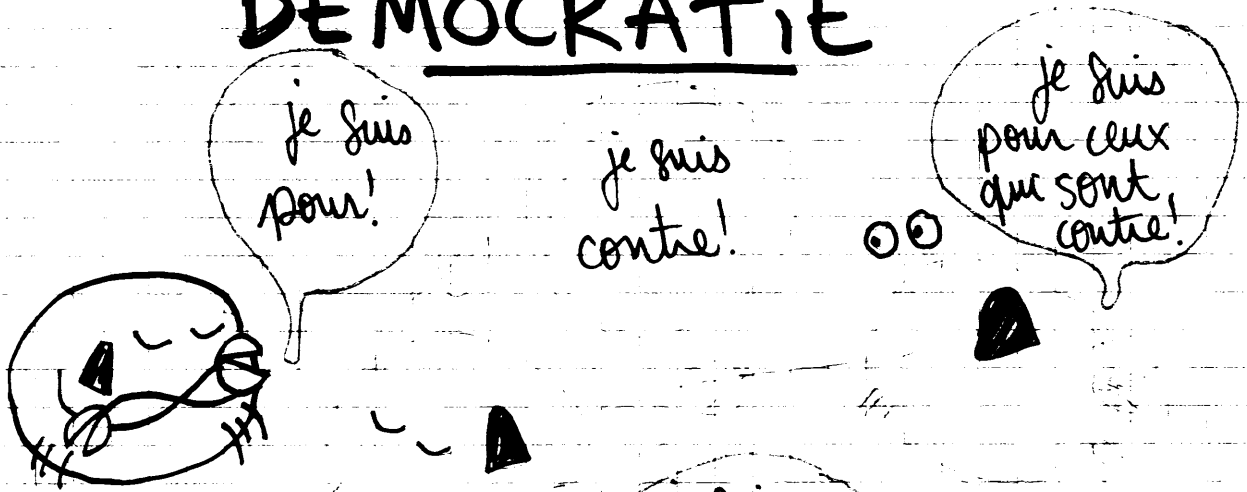 DEMOCRATiE
je suis
pour!
je suis
contre!
je suis
pour ceux
qui sont
contre!